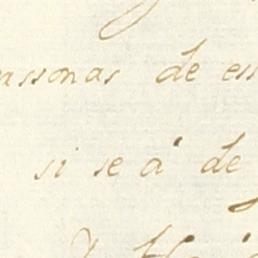 assonas de ess
si se á de